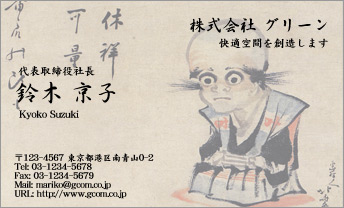 株式会社 グリーン
快適空間を創造します
代表取締役社長
鈴木 京子
Kyoko Suzuki
〒123-4567 東京都港区南青山0-2
Tel: 03-1234-5678
Fax: 03-1234-5679
Mail: mariko@gcom.co.jp
URL: http://www.gcom.co.jp